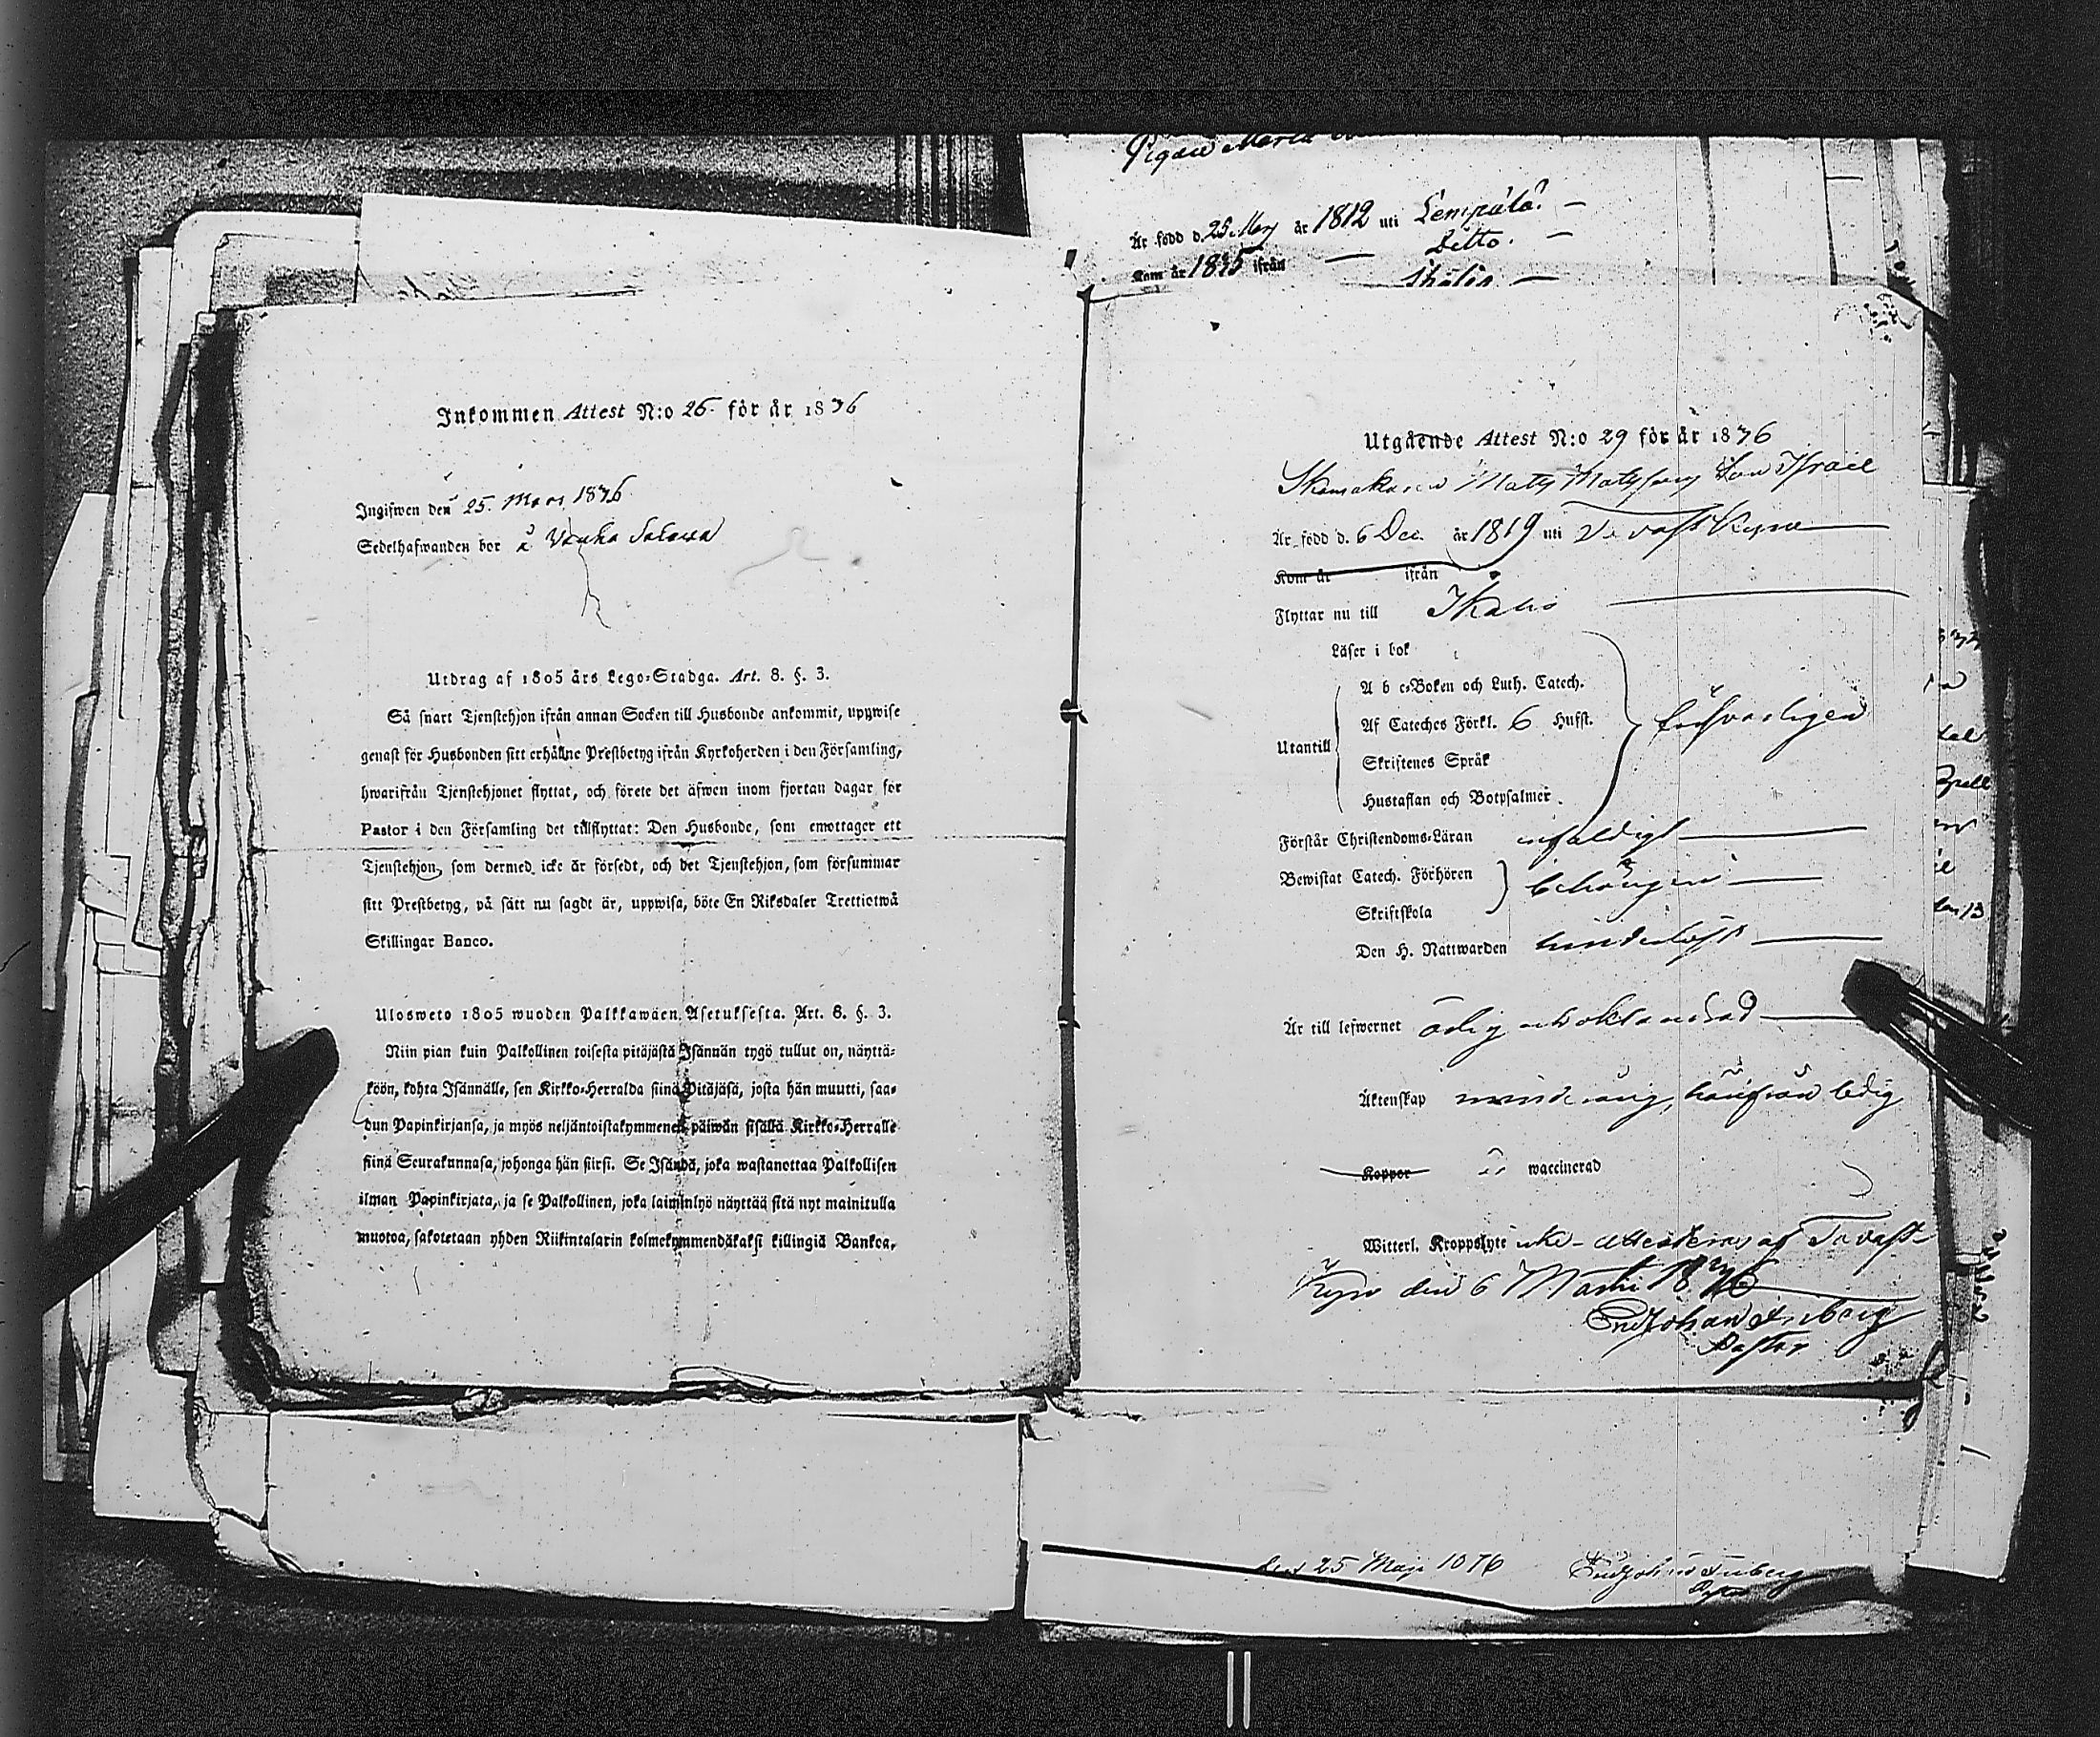 Pigan Maria
Är född d. 25 Maij år 1812 uti Lempälä. —
Kom år 1835 ifrån — Ditto. —
Ikalis —
Inkommen Attest N:o 26. för år 1836
Ingifwen den 25. Mars 1836.
Sedelhafwanden bor å
Utdrag af 1805 års Lego-Stadga. Art. 8. §. 3.
Så snart Tjenstehjon ifrån annan Socken till Husbonde ankommit, uppwise
genast för Husbonden sitt erhållne Prestbetyg ifrån Kyrkoherden i den Församling,
hwarifrån Tjenstehjonet flyttat, och förete det äfwen inom fjortan dagar för
Pastor i den Församling det tillflyttat: Den Husbonde, som emottager ett
Tjenstehjon, som dermed icke är försedt, och det Tjenstehjon, som försummar
sitt Prestbetyg, på sätt nu sagdt är, uppwisa, böte En Riksdaler Trettiotwå
Skillingar Banco.
Ulosweto 1805 wuoden Palkkawäen Asetuksesta. Art. 8. §. 3.
Niin pian kuin Palkollinen toisesta pitäjästä Isännän tygö tullut on, näyttä-
köön, kohta Isännälle, sen Kirkko-Herralda siinä Pitäjäsä, josta hän muutti, saa-
dun Papinkirjansa, ja myös neljäntoistakymmenen päiwän sisällä Kirkko-Herralle
siinä Seurakunnasa, johonga hän siirsi. Se Isändä, joka wastanottaa Palkollisen
ilman Papinkirjata, ja se Palkollinen, joka laiminlyö näyttää sitä nyt mainitulla
muotoa, sakotetaan yhden Riikintalarin kolmekymmendäkaksi killingiä Bankoa,
Utgående Attest N:o 29 för år 1836
Skomakaren Mats Matsson's Son Israel
Är född d. 6 Dec. år 1819 uti Tavastkyro
Kom år ifrån
Flyttar nu till Ikalis
Läser i bok
A b c-Boken och Luth. Catech.
Af Cateches Förkl. 6 Hufst.
Utantill försvarligen
Skriftenes Språk
Hustaflan och Botpsalmer.
Förstår Christendoms-Läran enfaldigt
Bewistat Catech. Förhören behörigen
Skriftskola
Den H. Nattwarden
Är till lefwernet ärlig och oklandrad
Äktenskap minderårig, härifrån ledig
Koppor är waccinerad
Witterl. Kroppslyte icke - attesteras af Tavast-
Kyro den 6 Martii 1836
Johan Freberg
Pastor
den 25 Maji 1836
Pastor